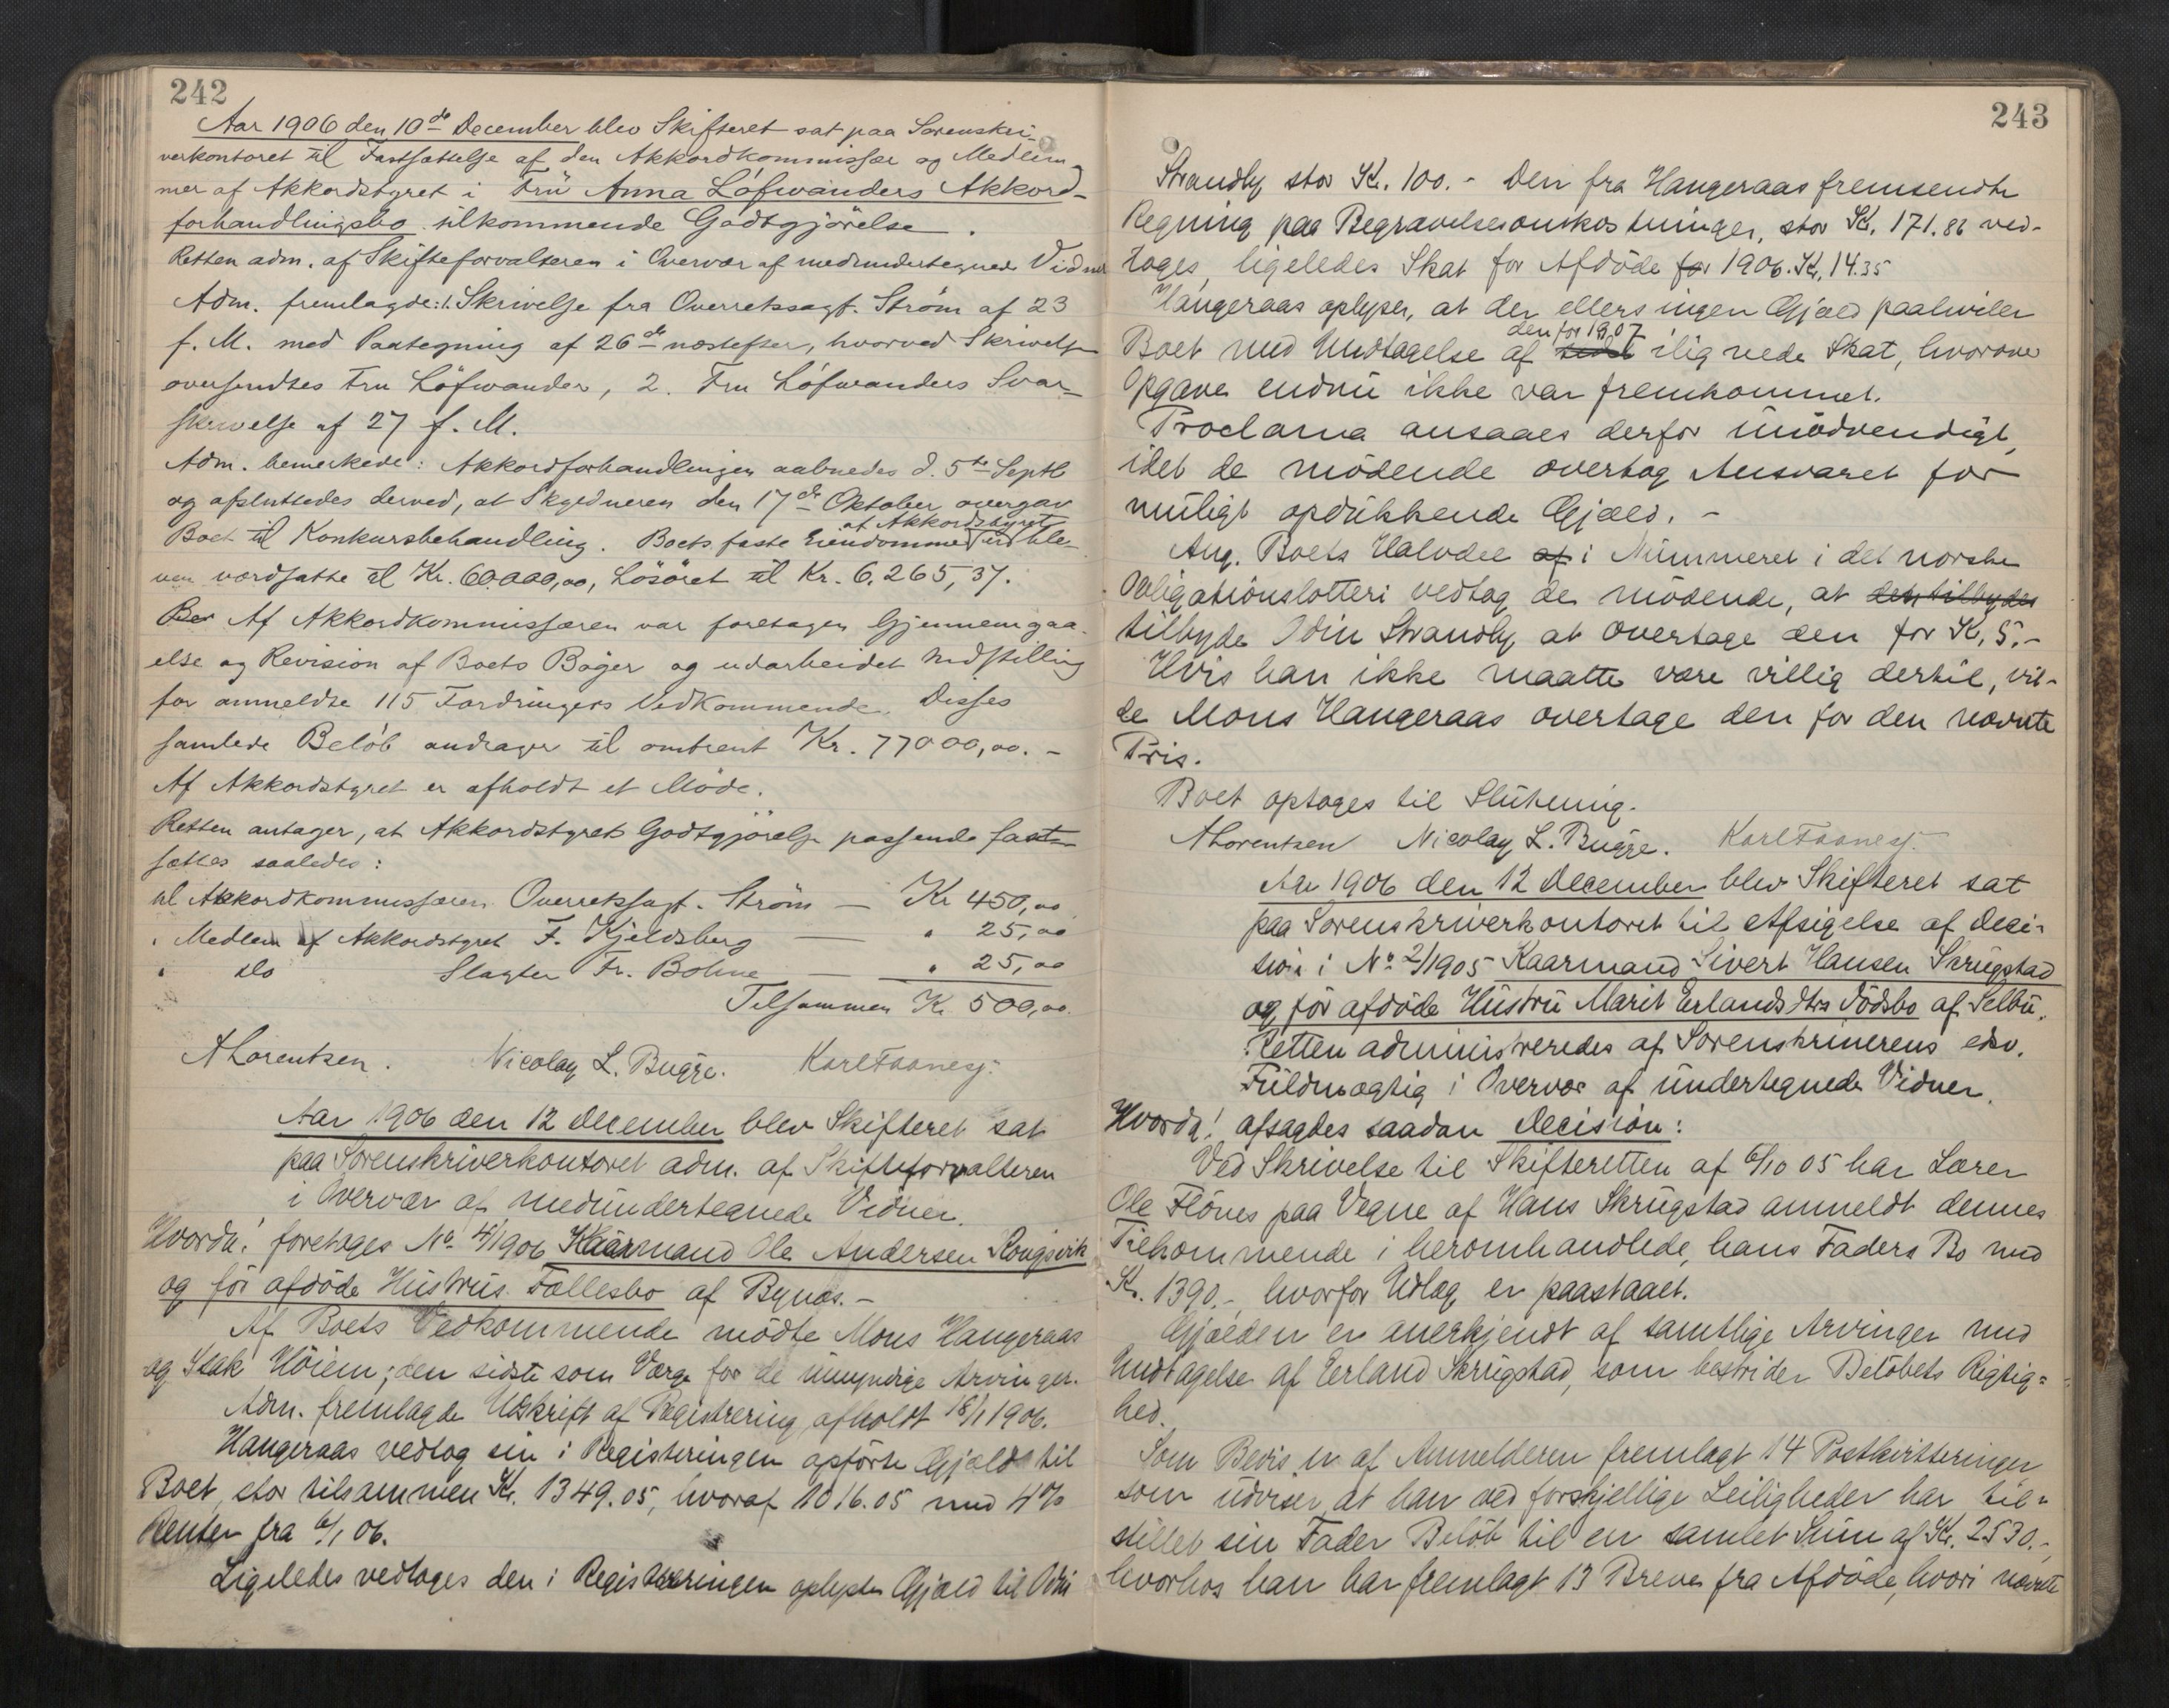 242
Aar 1906 den 10de December blev Skifteret sat paa Sorenskri-
verkontoret til Fastsættelse af den Akkordkommissær og Medlem-
mer af Akkordstyret i Fru Anna Löfwanders Akkord-
forhandlingsbo tilkommende Godtgjörelse.
Retten adm. af Skifteforvalteren i Overvær af medundertegnede Vidner
Adm. fremlagde: 1. Skrivelse fra Overretssagf. Ström af 23
f. M. med Paategning af 26de næstefter, hvorved Skrivelsen
oversendtes Fru Löfwander, 2. Fru Löfwanders Svar-
skrivelse af 27 f. M.
Adm. bemerkede: Akkordforhandlingen aabnedes d. 5te Septb
og afsluttedes derved, at Skyldneren den 17de Oktober overgav
Boet til Konkursbehandling. Boets faste Eiendomme af Akkordstyret ble-
ven værdsatte til Kr. 60.000,00, Lösöret til Kr. 6.265,37.
Bes Af Akkordkommissæren var foretagen Gjennemgaa-
else og Revision af Boets Böger og udarbeidet Indstilling
for anmeldte 115 Fordringers Vedkommende. Disses
samlede Belöb andrager til omtrent Kr. 77000,00. -
Af Akkordstyret er afholdt et Möde.
Retten antager, at Akkordstyrets Godtgjörelse passende fast-
sættes saaledes:
til Akkordkommissæren Overretssagf. Ström — Kr 450,00
" Medlem af Akkordstyret F. Kjeldsberg — " 25,00
" do Slagter Fr. Bohne — " 25,00
Tilsammen Kr 500,00.
A Lorentzen. Nicolay L. Bugge. Karl Faanes
Aar 1906 den 12 December blev Skifteret sat
paa Sorenskriverkontoret adm. af Skifteforvalteren
i Overvær af medundertegnede Vidner.
Hvorda! foretoges No 4/1906 Kaarmand Ole Andersen Rongsvik
og för afdöde Hustrus Fællesbo af Bynæs. -
Af Boets Vedkommende mödte Mons Hangeraas
og Isak Höiem; den sidste som Værge for de umyndige Arvinger.
Adm. fremlagde Udskrift af Registrering afholdt 18/1 1906.
Hangeraas vedtog sin i Registeringen opförte Gjæld til
Boet, stor tilsammen Kr. 1349.05, hvoraf 1016.05 med 4%
Renter fra 6/1 06.
Ligeledes vedtoges den i Registreringen oplyste Gjæld til Odin
243
Strandby stor Kr. 100.- Den fra Hangeraas fremsendte
Regning paa Begravelsesomkostninger, stor Kr. 171.86 ved-
toges, ligeledes Skat for Afdöde for 1906. Kr. 14.35
Hangeraas oplyser, at der ellers ingen Gjæld paahviler
den for 1907
Boet med Undtagelse af ilignede Skat, hvorover
Opgave endnu ikke var fremkommet.
Proclama ansaaes derfor unödvendigt,
idet de mödende overtog Ansvaret for
muligt opdukkende Gjæld. -
Ang. Boets Halvdel af i Nummeret i det norske
Obligationslotteri vedtog de mödende, at den tilbydes
tilbyde Odin Strandby at overtage den for Kr. 5.-
Hvis han ikke maatte være villig dertil, vil-
de Mons Hangeraas overtage den for den nævnte
Pris.
Boet optoges til Slutning.
A Lorentzen Nicolay L. Bugge. Karl Faanes
Aar 1906 den 12 December blev Skifteret sat
paa Sorenskriverkontoret til Afsigelse af Deci-
sion i No 2/1905 Kaarmand Sivert Hansen Skrugstad
og för afdöde Hustru Marit Erlandsdtrs Dödsbo af Selbu.
Retten administreredes af Sorenskriverens edsv.
Fuldmægtig i Overvær af undertegnede Vidner.
Hvorda! afsagdes saadan Decision:
Ved Skrivelse til Skifteretten af 6/10 05 har Lærer
Ole Flönes paa Vegne af Hans Skrugstad anmeldt dennes
Tilkommende i heromhandlede, hans Faders Bo med
Kr. 1390.-, hvorfor Udlæg er paastaaet.
Gjælden er anerkjendt af samtlige Arvinger med
Undtagelse af Erland Skrugstad, som bestrider Belöbets Rigtig=
hed.
Som Bevis er af Anmelderen fremlagt 14 Postkvitteringer
som udviser, at han ved forskjellige Leiligheder har til=
stillet sin Fader Belöb til en samlet Sum af Kr. 2530.-,
hvorhos han har fremlagt 13 Breve fra Afdöde, hvori nævnte